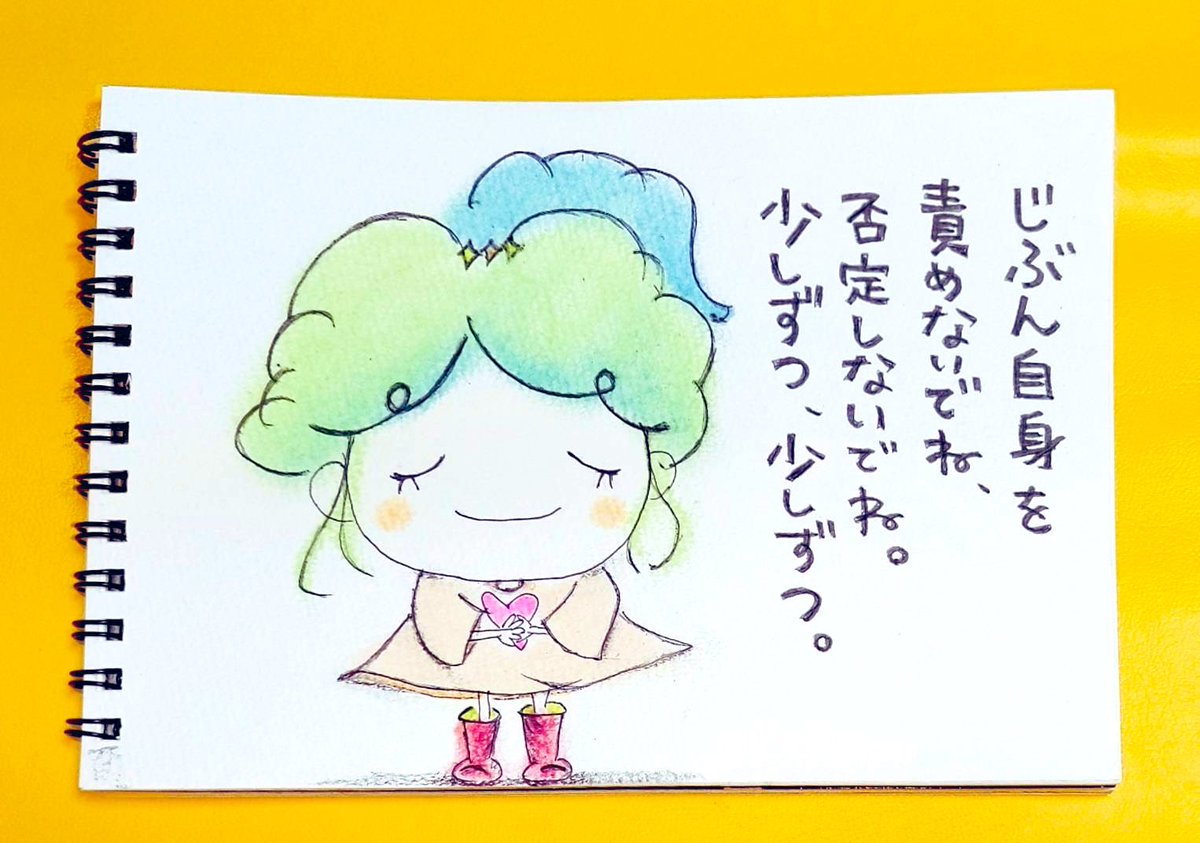 じぶん自身を
責めないでね、
否定しないでね。
少しずつ、少しずつ。